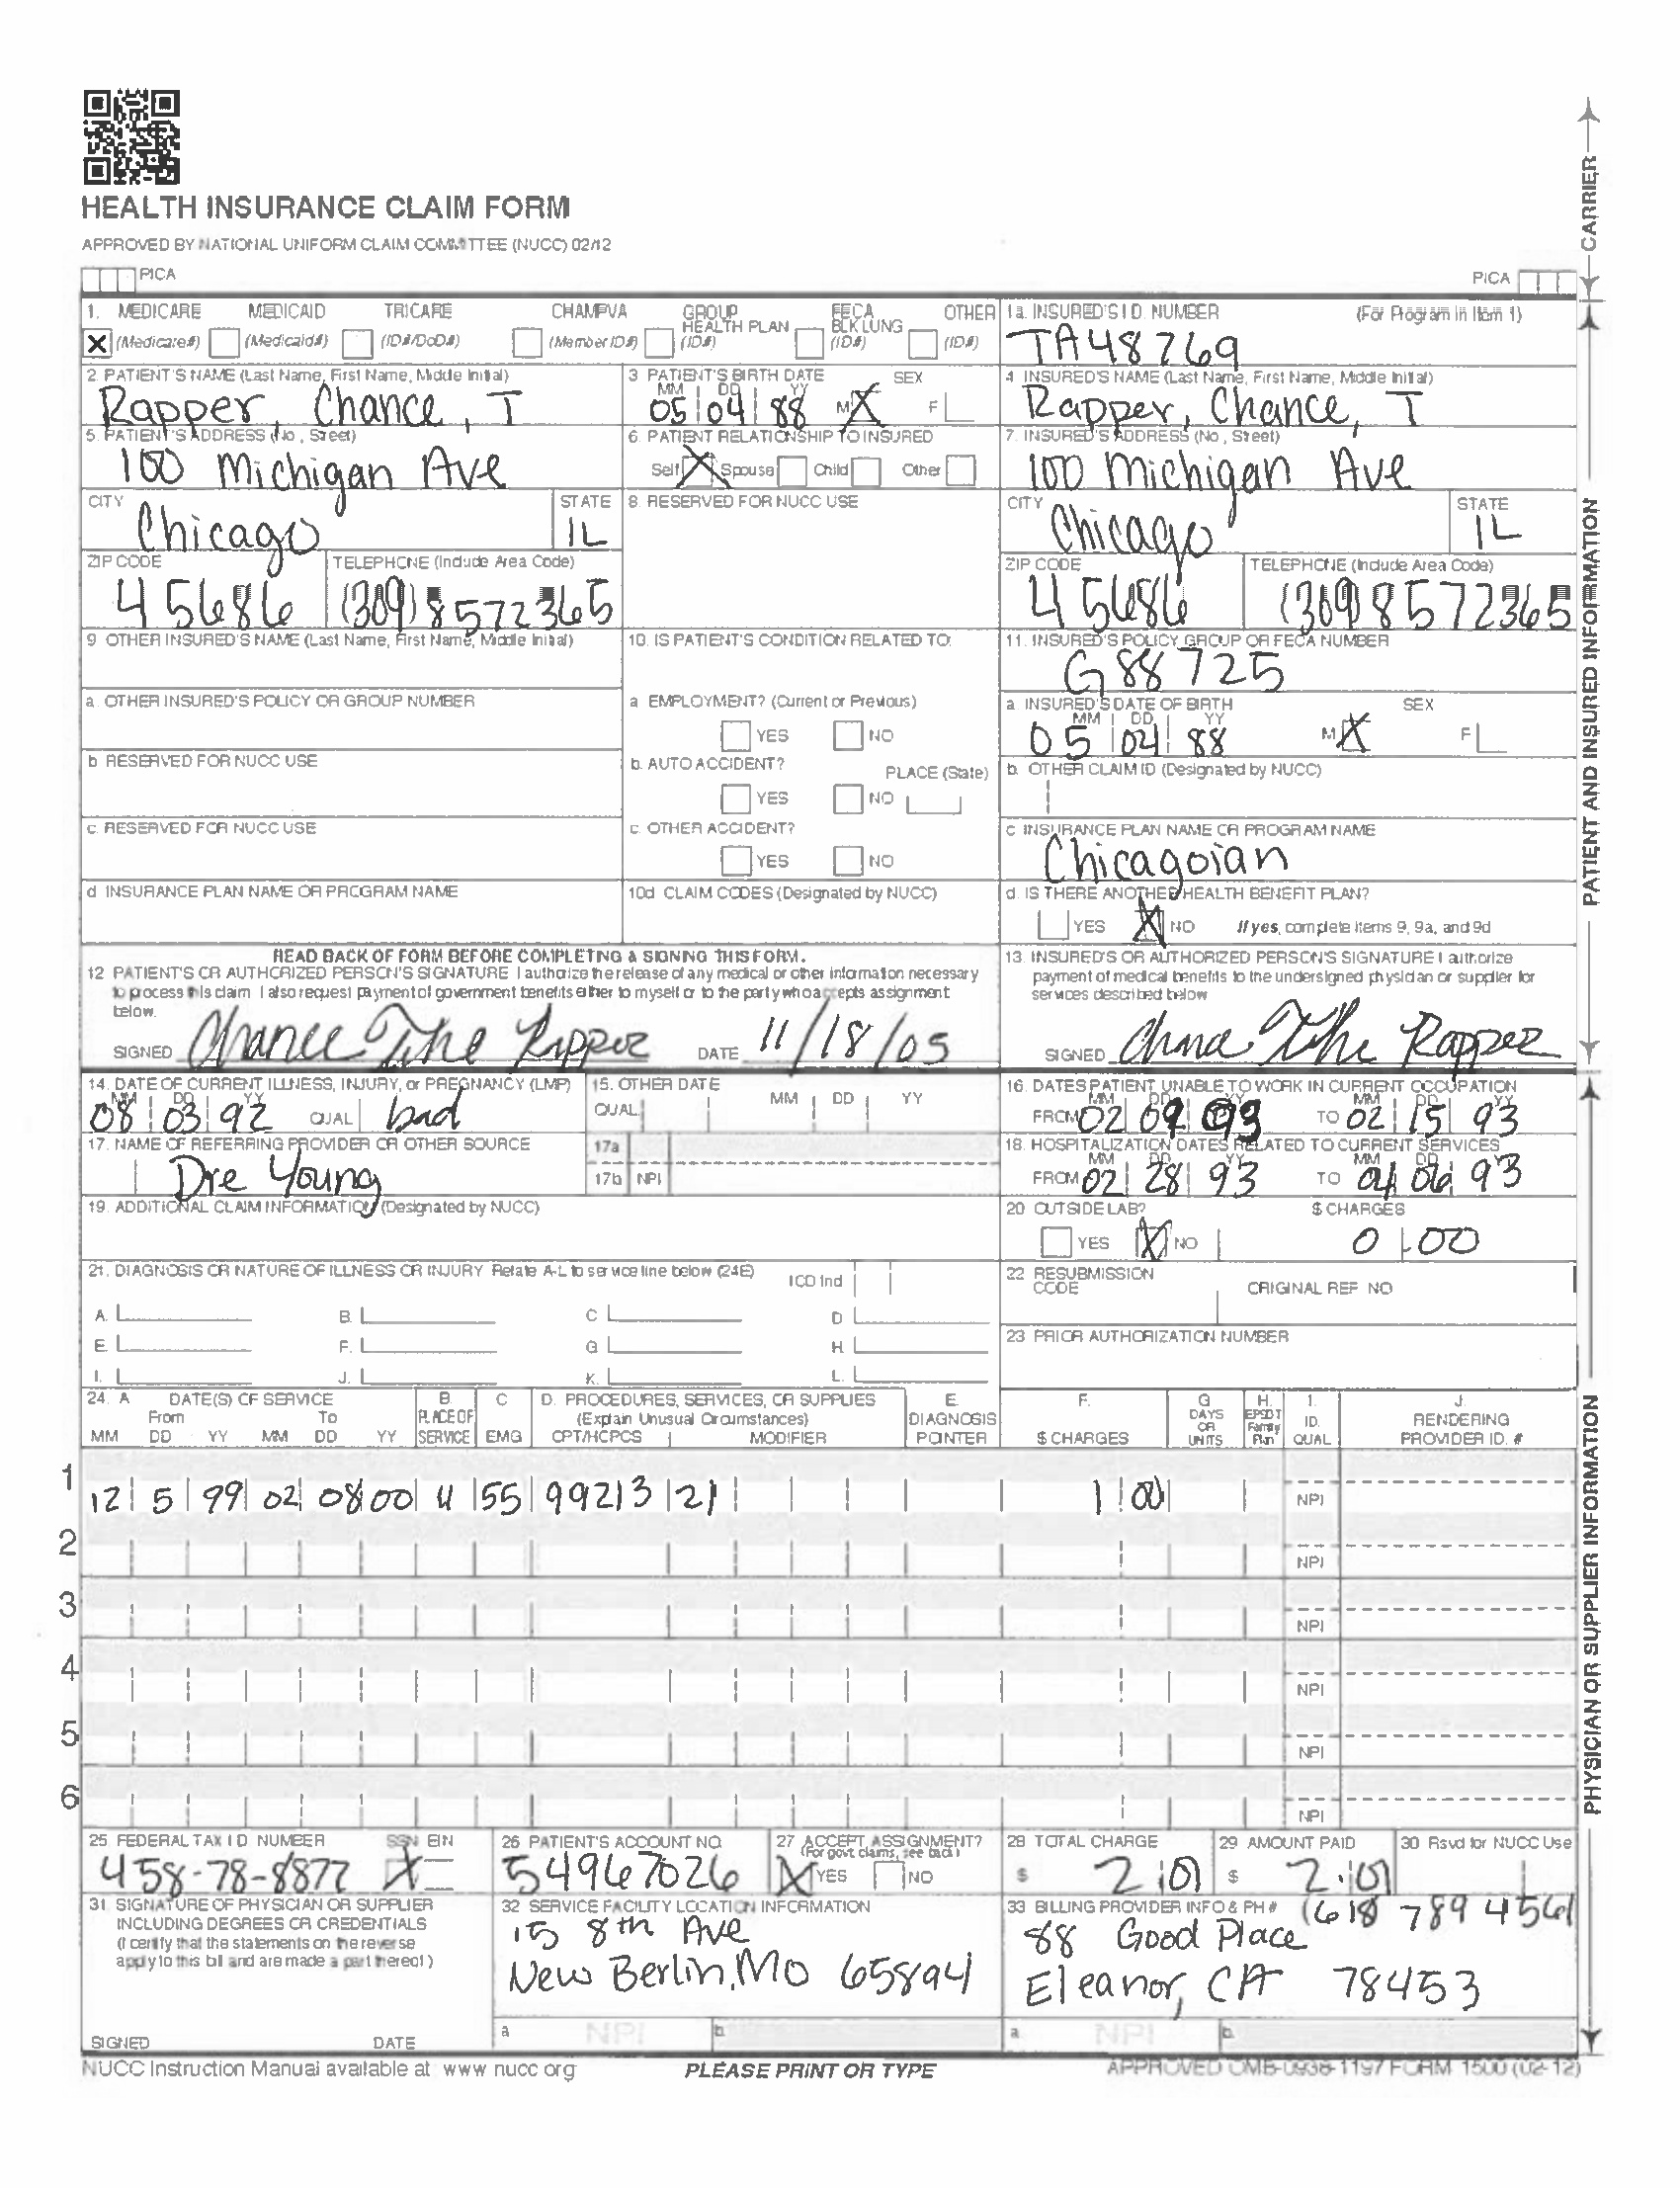 HEALTH INSURANCE CLAIM FORM
APPROVED BY NATIONAL UNIFORM CLAIM COMMITTEE (NUCC) 02/12
PICA
PICA
CARRIER
1. MEDICARE MEDICAID TRICARE CHAMPVA GROUP HEALTH PLAN FECA BLK LUNG OTHER
X (Medicare#) (Medicaid#) (ID#/DoD#) (Member ID#) (ID#) (ID#) (ID#)
1a. INSURED'S I.D. NUMBER (For Program in Item 1)
TA48769
2. PATIENT'S NAME (Last Name, First Name, Middle Initial)
Rapper, Chance, T
3 PATIENT'S BIRTH DATE SEX
MM DD YY
05 04 88 M X F
4 INSURED'S NAME (Last Name, First Name, Middle Initial)
Rapper, Chance, T
5. PATIENT'S ADDRESS (No., Street)
100 Michigan Ave
6. PATIENT RELATIONSHIP TO INSURED
Self X Spouse Child Other
7. INSURED'S ADDRESS (No., Street)
100 Michigan Ave
CITY STATE
Chicago IL
8. RESERVED FOR NUCC USE
CITY STATE
Chicago IL
ZIP CODE TELEPHONE (Include Area Code)
45686 (309) 8572365
ZIP CODE TELEPHONE (Include Area Code)
45686 (309) 8572365
9 OTHER INSURED'S NAME (Last Name, First Name, Middle Initial)
10. IS PATIENT'S CONDITION RELATED TO:
11. INSURED'S POLICY GROUP OR FECA NUMBER
G88725
a. OTHER INSURED'S POLICY OR GROUP NUMBER
a EMPLOYMENT? (Current or Previous)
YES NO
a. INSURED'S DATE OF BIRTH SEX
MM DD YY
05 04 88 M X F
b RESERVED FOR NUCC USE
b. AUTO ACCIDENT? PLACE (State)
YES NO
b. OTHER CLAIM ID (Designated by NUCC)
c. RESERVED FOR NUCC USE
c. OTHER ACCIDENT?
YES NO
c INSURANCE PLAN NAME OR PROGRAM NAME
Chicagoian
d INSURANCE PLAN NAME OR PROGRAM NAME
10d CLAIM CODES (Designated by NUCC)
d. IS THERE ANOTHER HEALTH BENEFIT PLAN?
YES X NO If yes, complete items 9, 9a, and 9d
PATIENT AND INSURED INFORMATION
READ BACK OF FORM BEFORE COMPLETING & SIGNING THIS FORM.
12 PATIENT'S OR AUTHORIZED PERSON'S SIGNATURE I authorize the release of any medical or other information necessary
to process this claim I also request payment of government benefits either to myself or to the party who accepts assignment
below.
SIGNED Chance The Rapper DATE 11/18/05
13. INSURED'S OR AUTHORIZED PERSON'S SIGNATURE I authorize
payment of medical benefits to the undersigned physician or supplier for
services described below
SIGNED The Rapper
14. DATE OF CURRENT ILLNESS, INJURY, or PREGNANCY (LMP)
MM DD YY
08 03 92 QUAL bad
15. OTHER DATE
QUAL MM DD YY
16. DATES PATIENT UNABLE TO WORK IN CURRENT OCCUPATION
MM DD YY MM DD YY
FROM 02 09 93 TO 02 15 93
17. NAME OF REFERRING PROVIDER OR OTHER SOURCE
Dre Young
17a
17b NPI
18. HOSPITALIZATION DATES RELATED TO CURRENT SERVICES
MM DD YY MM DD YY
FROM 02 28 93 TO 04 06 93
19. ADDITIONAL CLAIM INFORMATION (Designated by NUCC)
20 OUTSIDE LAB? $ CHARGES
YES X NO 0 00
21. DIAGNOSIS OR NATURE OF ILLNESS OR INJURY Relate A-L to service line below (24E) ICD Ind
A. B. C D
E. F. G H.
I. J. K. L.
22 RESUBMISSION CODE ORIGINAL REF NO
23 PRIOR AUTHORIZATION NUMBER
24. A DATE(S) OF SERVICE B. PLACE OF SERVICE C EMG D. PROCEDURES, SERVICES, OR SUPPLIES E. DIAGNOSIS POINTER F. $ CHARGES G DAYS OR UNITS H. EPSDT Family Plan I. ID. QUAL J. RENDERING PROVIDER ID. #
From To (Explain Unusual Circumstances)
MM DD YY MM DD YY CPT/HCPCS MODIFIER
1 12 5 99 02 08 00 55 99213 21 1 00 NPI
2 NPI
3 NPI
4 NPI
5 NPI
6 NPI
25 FEDERAL TAX I D NUMBER SSN EIN
458-78-8877 X
26 PATIENT'S ACCOUNT NO.
54967026
27 ACCEPT ASSIGNMENT?
(For govt. claims, see back)
X YES NO
28 TOTAL CHARGE
$ 2 01
29 AMOUNT PAID
$ 2.01
30 Rsvd for NUCC Use
31 SIGNATURE OF PHYSICIAN OR SUPPLIER
INCLUDING DEGREES OR CREDENTIALS
(I certify that the statements on the reverse
apply to this bill and are made a part thereof)
SIGNED DATE
32 SERVICE FACILITY LOCATION INFORMATION
15 8th Ave
New Berlin, MO 65894
a NPI b.
33 BILLING PROVIDER INFO & PH # (618 789 4561
88 Good Place
Eleanor, CA 78453
a. NPI b.
PHYSICIAN OR SUPPLIER INFORMATION
NUCC Instruction Manual available at www nucc org
PLEASE PRINT OR TYPE
APPROVED OMB-0938-1197 FORM 1500 (02-12)